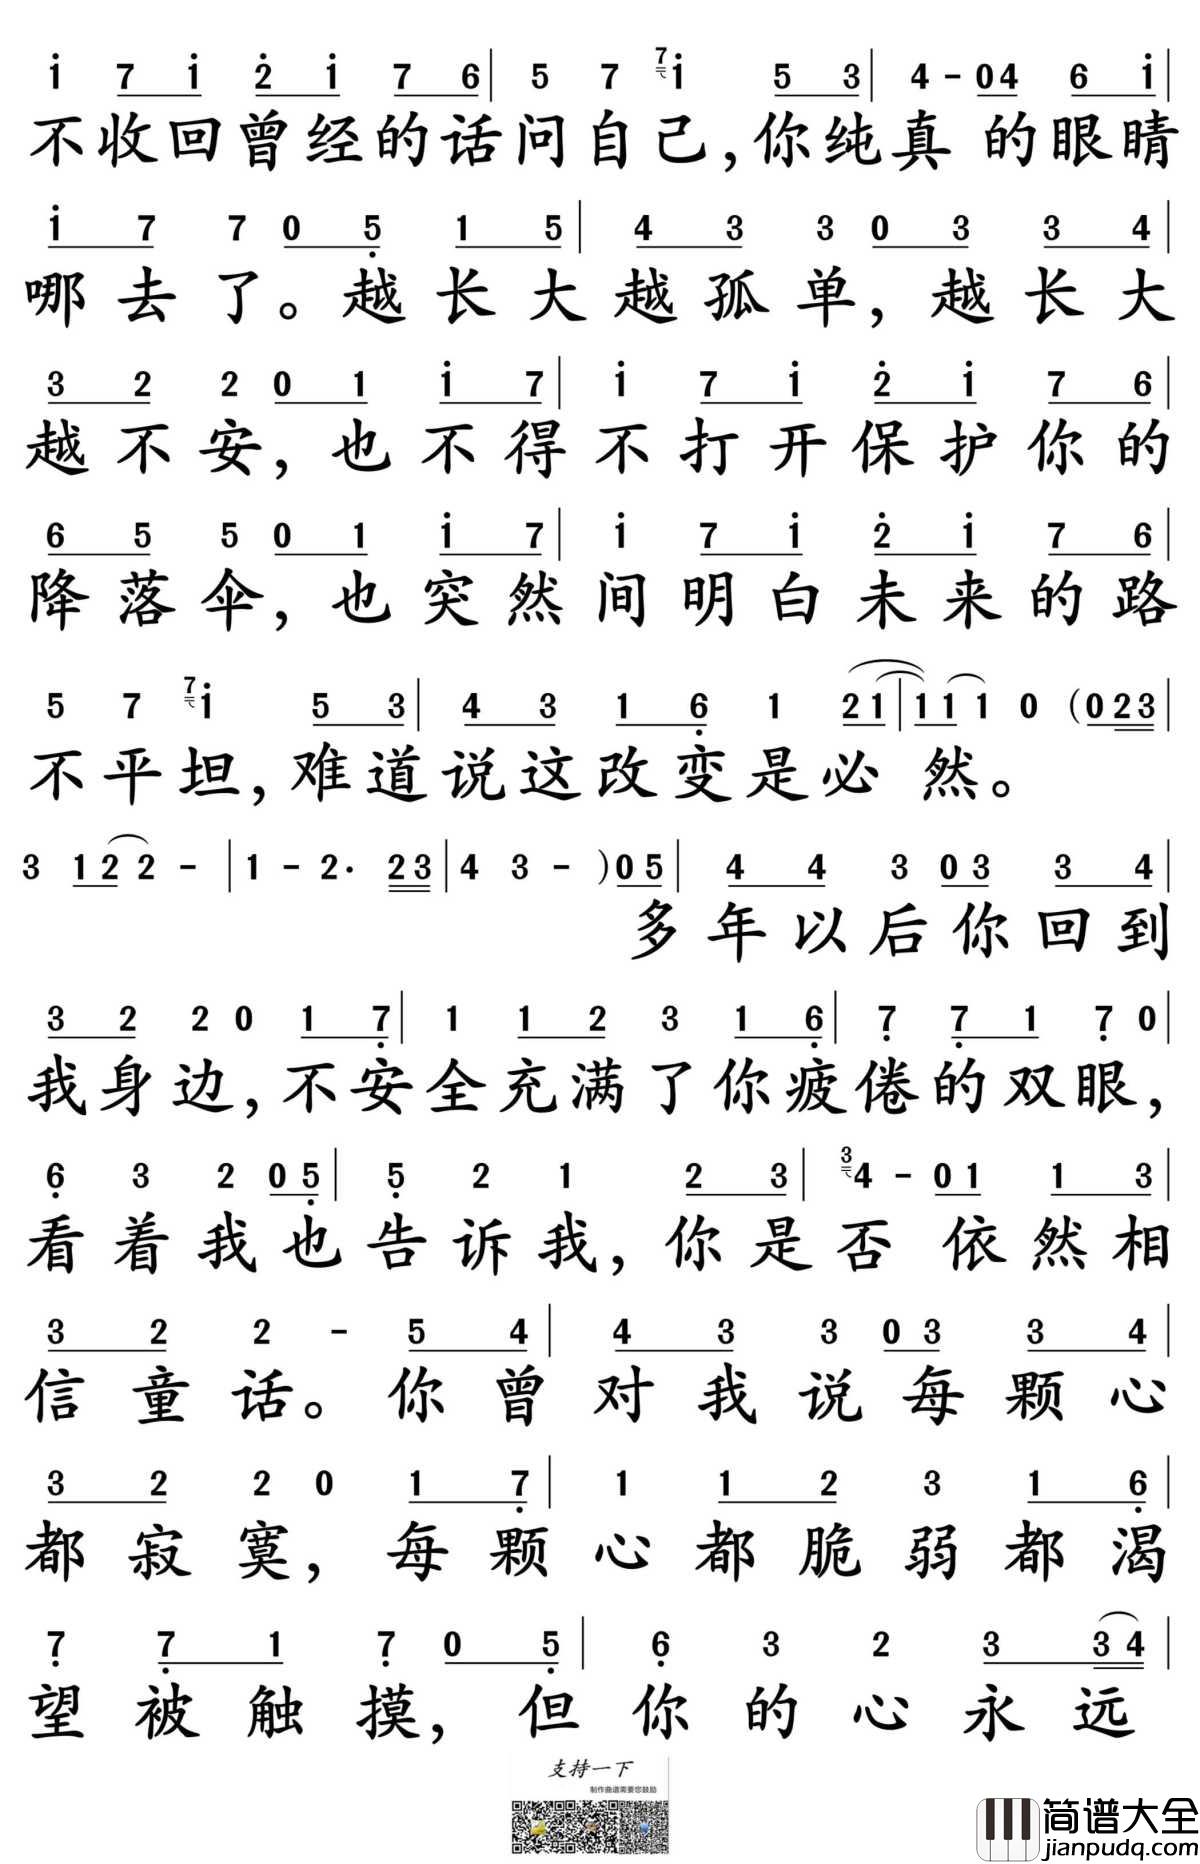 i 7 i 2 i 7 6 | 5 7 7 i 5 3 | 4 - 0 4 6 i |
不收回曾经的话问自己,你纯真 的眼睛
i 7 7 0 5 1 5 | 4 3 3 0 3 3 4 |
哪去了。越长大越孤单,越长大
3 2 2 0 1 i 7 | i 7 i 2 i 7 6 |
越不安,也不得不打开保护你的
6 5 5 0 1 i 7 | i 7 i 2 i 7 6 |
降落伞,也突然间明白未来的路
5 7 7 i 5 3 | 4 3 1 6 1 2 1 | 1 1 1 0 (0 2 3 |
不平坦,难道说这改变是必 然。
3 1 2 2 - | 1 - 2 · 2 3 | 4 3 - ) 0 5 | 4 4 3 0 3 3 4 |
多年以后你回到
3 2 2 0 1 7 | 1 1 2 3 1 6 | 7 7 1 7 0 |
我身边,不安全充满了你疲倦的双眼,
6 3 2 0 5 | 5 2 1 2 3 | 3 4 - 0 1 1 3 |
看着我也告诉我,你是否 依然相
3 2 2 - 5 4 | 4 3 3 0 3 3 4 |
信童话。你曾对我说每颗心
3 2 2 0 1 7 | 1 1 2 3 1 6 |
都寂寞,每颗心都脆弱都渴
7 7 1 7 0 5 | 6 3 2 3 3 4 |
望被触摸,但你的心永远
支持一下
制作曲谱需要您鼓励
简谱大全
jianpudq.com